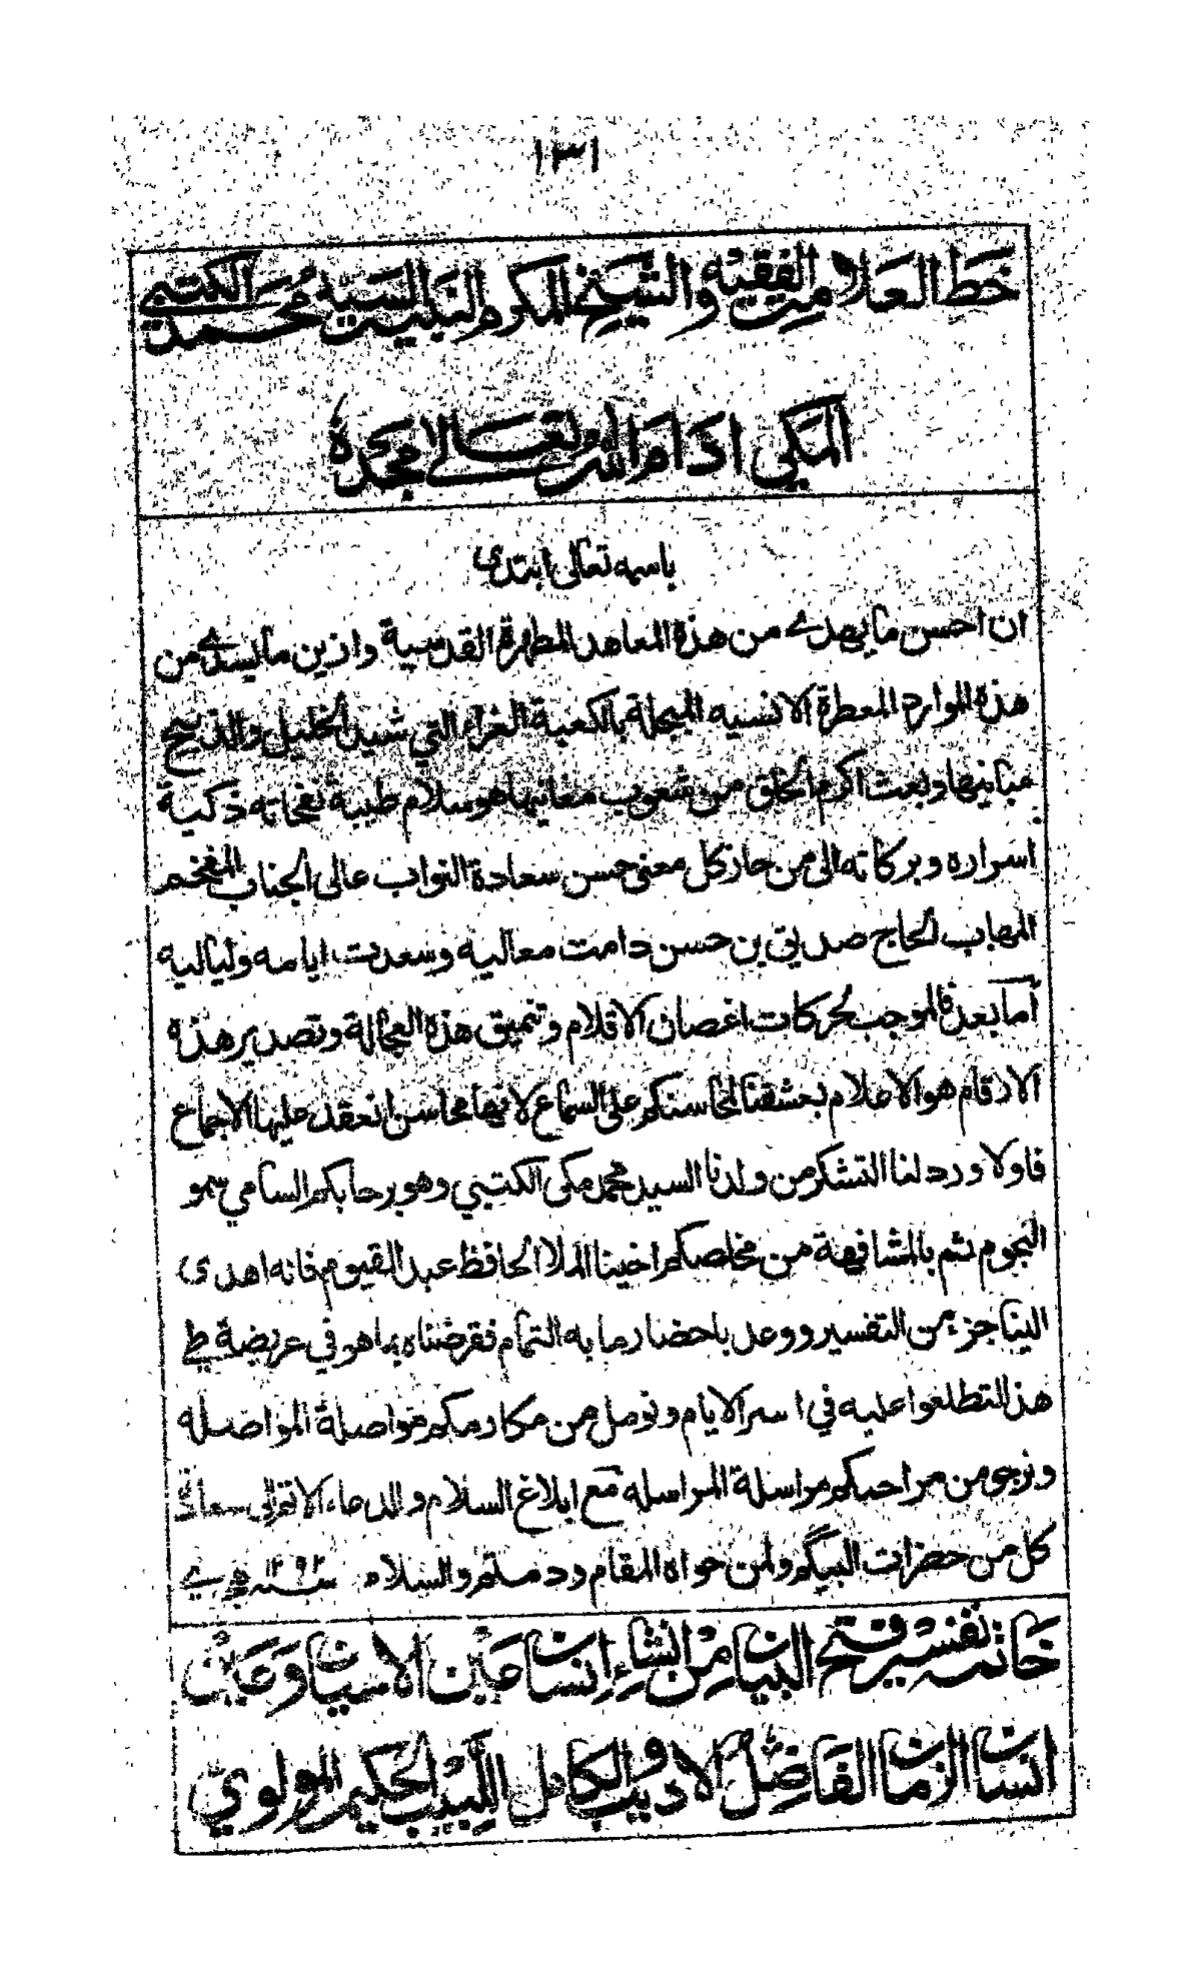 ١٣١
خط العلامة الفقيه والشيخ المكرم النبيه السيد محمد الكتبي
المكي ادام الله تعالى مجده
باسمه تعالى ابتدى
ان احسن ما يهدے من هذه المعاهد المطهرة القدسية وازين ما يسدے من
هذه الموارد المعطرة الانسيه المبجلة بالكعبة الغراء التي شيد الخليل والذبيح
مبانيها وبعث اكرم الخلق من شعوب مغانيها هو سلام طيبة نفحاته ذكية
اسراره وبركاته الى من حاز كل معنى حسن سعادة النواب عالى الجناب المفخم
المهاب الحاج صديق بن حسن دامت معاليه وسعدت ايامه ولياليه
أما بعد فالموجب لحركات اغصان الاقلام وتنميق هذه العجالة وتصدير هذه
الارقام هو الاعلام بعشقنا لمحاسنكم على السماع لانها محاسن انعقد عليها الاجماع
فاولا ورد لنا التشكر من ولدنا السيد محمد مكى الكتبي وهو برحابكم السامي سمو
النجوم ثم بالمشافهة من مخلصكم اخينا الملا الحافظ عبد القيوم فانه اهدى
الينا جزء من التفسير ووعد باحضار ما به التمام فقرضناه بما هو في عريضة طي
هذا لتطلعوا عليه في اسر الايام ونومل من مكارمكم مواصلة المواصله
ونرجو من مراحمكم مراسلة المراسله مع ابلاغ السلام والدعاء الاتم الى سعادة
كل من حضرات البيگم ولمن حواه المقام ودمتم والسلام سنه ١٢٩٢ هجرے
خاتمة تفسير فتح البيان من انشاء انسان عين الاعيان وعين
انسان الزمان الفاضل الاديب والكامل اللبيب الحكيم المولوي